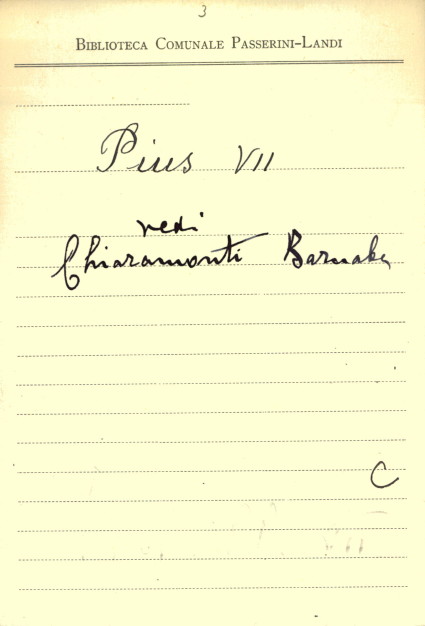 3
BIBLIOTECA COMUNALE PASSERINI-LANDI
Pius VII
vedi
Chiaramonti Barnaba
C